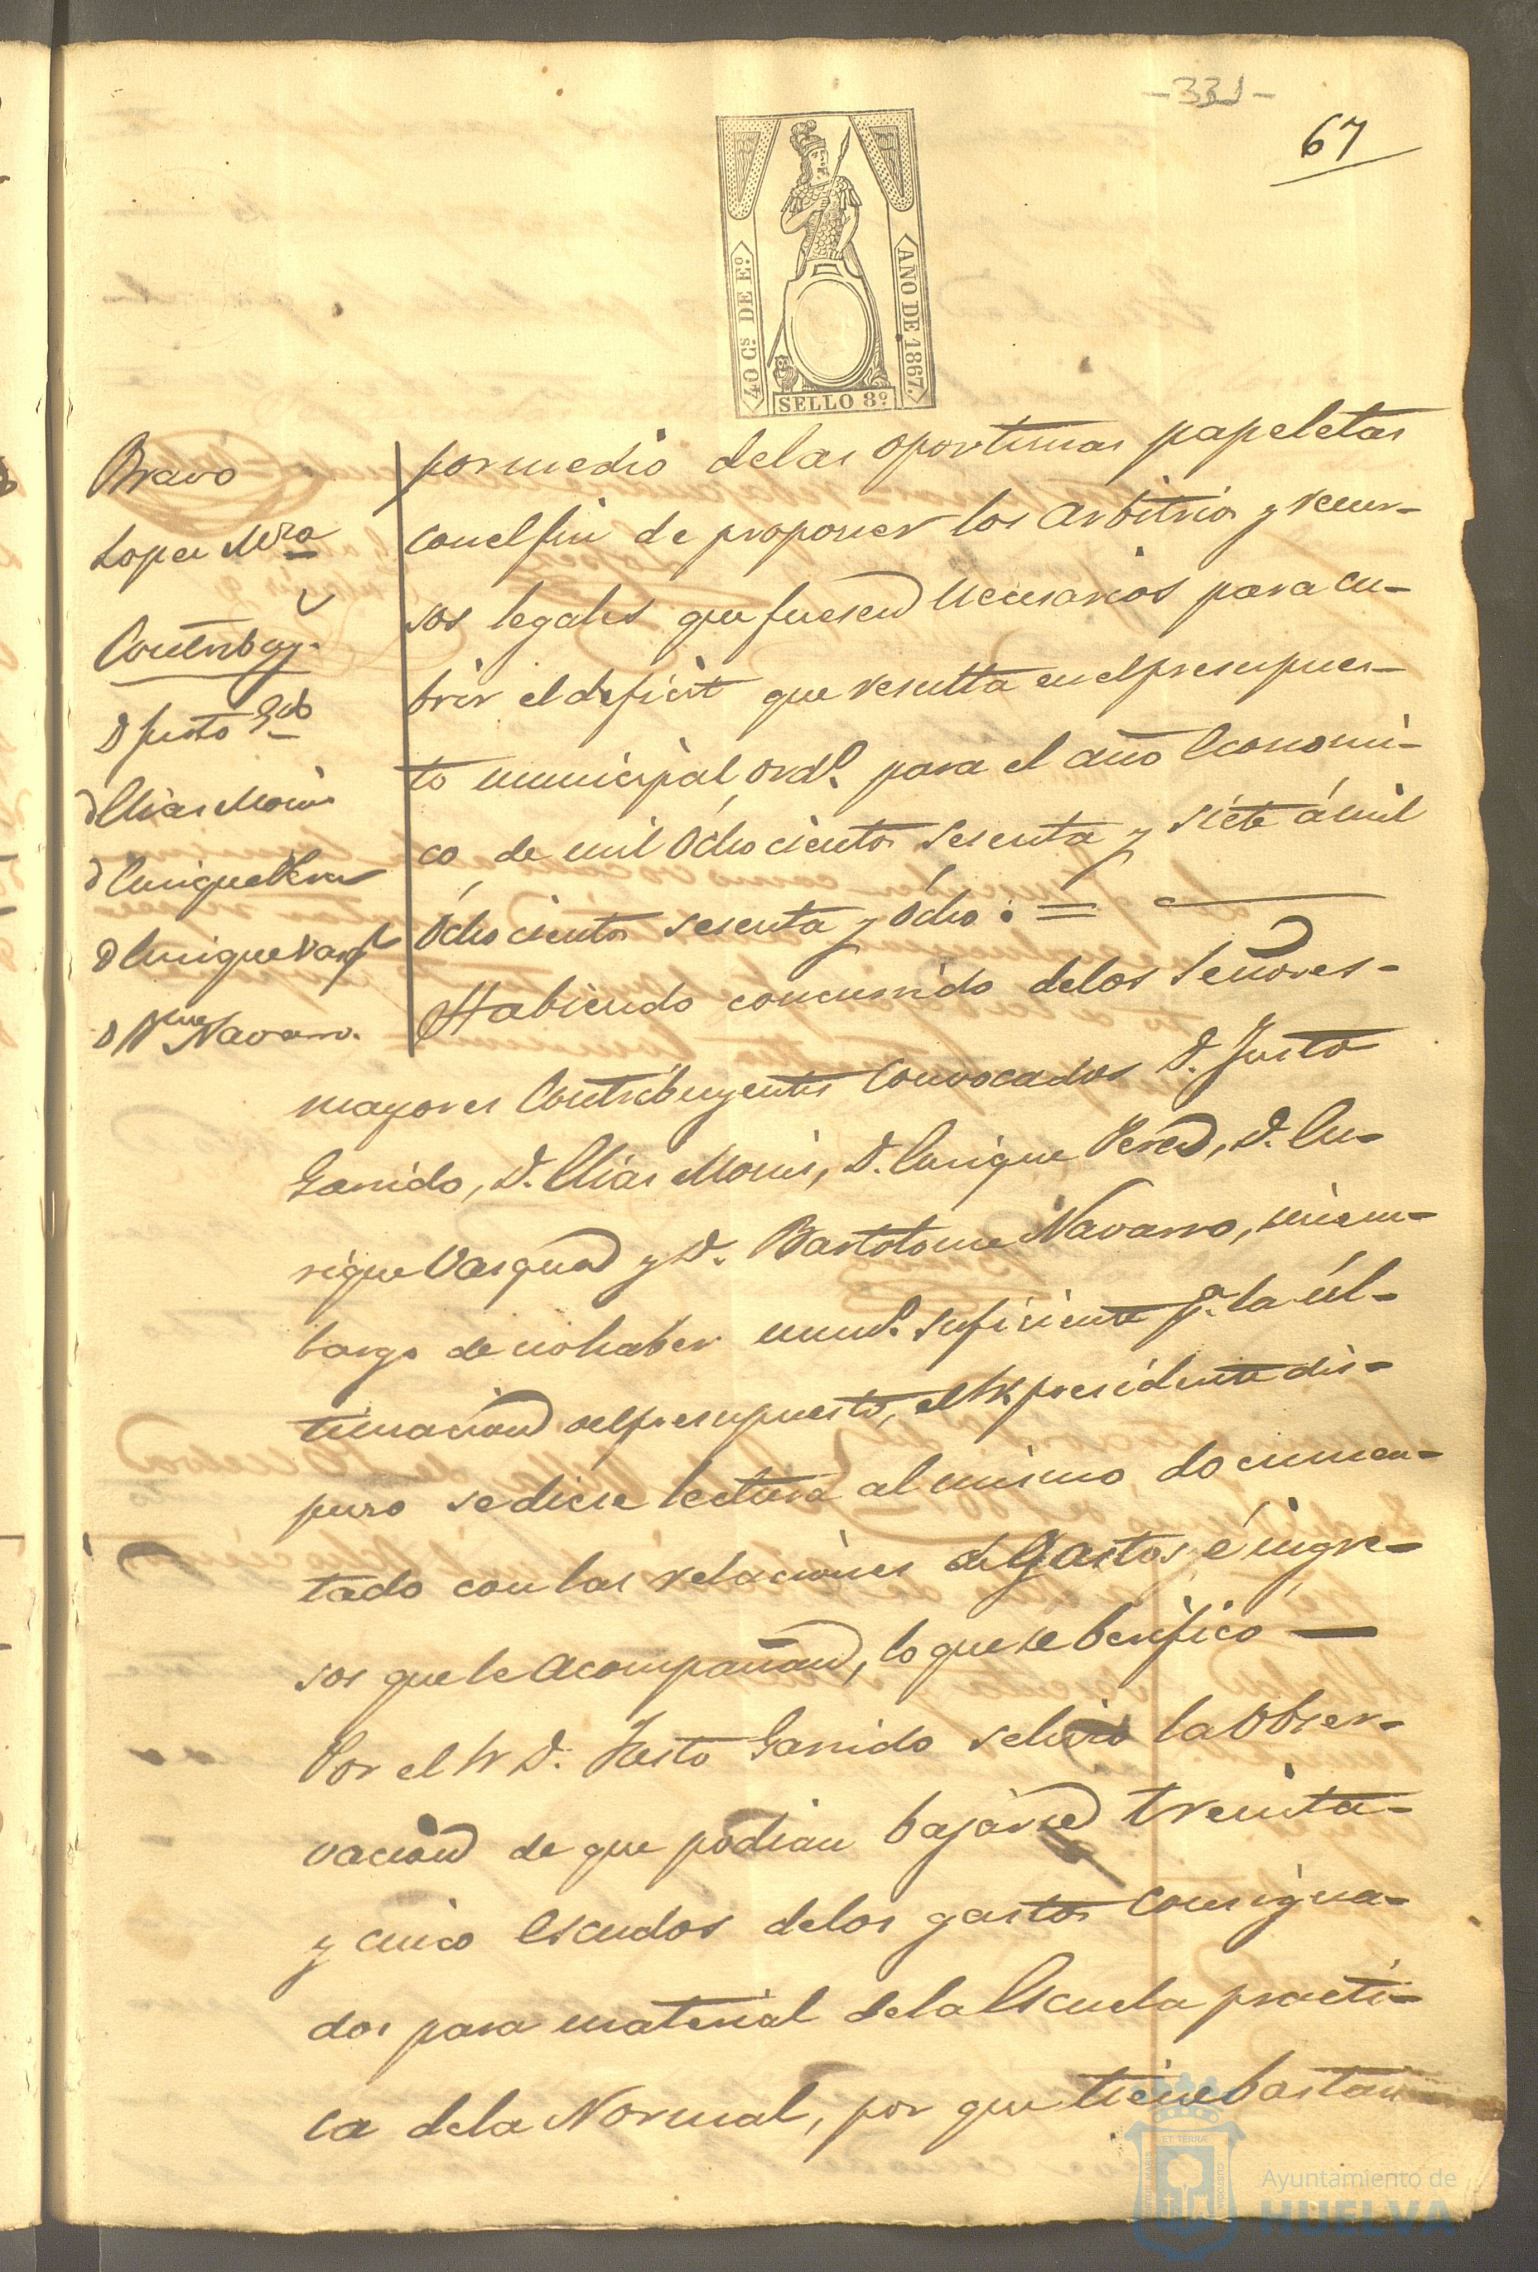 -331-
67
40 Cs DE Eº.
AÑO DE 1867.
SELLO 8º
Bravo
Lopez Mra
Contribuy.
D Justo Gdo
D Elias Monis
D Enrique Perez
D Enrique Vasqz
D Bme Navarro.
por medio delas oportunas papeletas
con el fin de proponer los arbitrios y recur-
sos legales que fuesen necesarios para cu-
brir el deficit que resulta en el presupues-
to municipal ordº. para el año Economi-
co de mil óchocientos sesenta y siete á mil
óchocientos sesenta y ócho: =
Habiendo concurrido delos Señores-
mayores Contribuyentes convocados D. Justo
Garrido, D. Elias Monis, D. Enrique Perez, D. En-
rique Vasquez y D. Bartolome Navarro, sin em-
bargo de no haber numº. suficiente pª. la úl-
timacion del presupuesto, el Sr. presidente dis-
puso se diese lectura al mismo documen-
tado con las relaciones de Gastos é ingre-
sos que le acompañan, lo que se berifico
Por el Sr D. Justo Garrido se hizo la obser-
vacion de que podian bajarse treinta-
y cinco escudos delos gastos consigna-
dos para material dela Escuela practi-
ca dela Normal, por que tiene bastan
ET TERRÆ
CUSTODIA
Ayuntamiento de
HUELVA